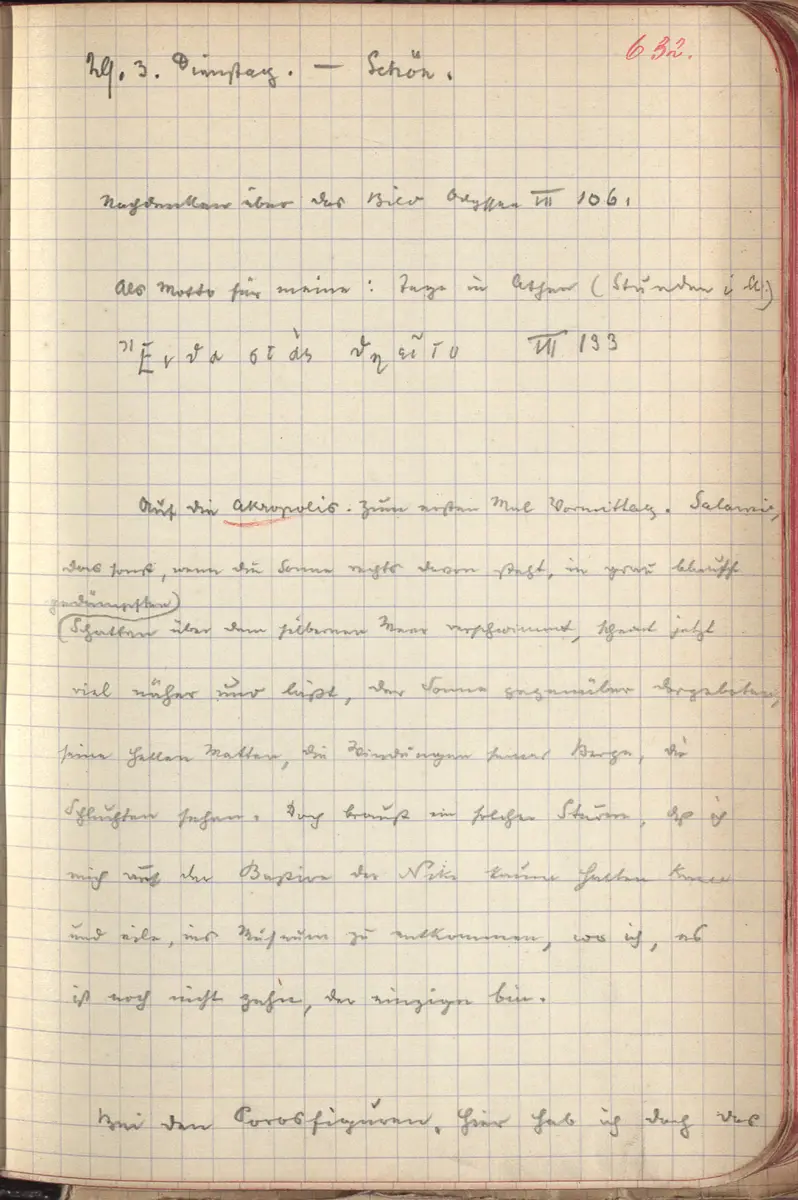 632.
29. 3. Dienstag. — Schön.
Nachdenken über das Bild Odyssee III 106.
Als Motto für meine: Tage in Athen (Stunden i A.)
Ἔνθα στὰς θηεῖτο III 133
Auf die Akropolis. Zum ersten Mal Vormittag. Salamis,
das sonst, wenn die Sonne rechts davon steht, in grau
gedämpften
Schatten über dem silbernen Meer verschwimmt, scheint jetzt
viel näher und läßt, der Sonne gegenüber dargeboten,
seine hellen Matten, die Windungen seiner Berge, die
Schluchten sehen. Doch braust ein solcher Sturm, daß ich
mich auf der Bastion der Nike kaum halten kann
und eile, ins Museum zu entkommen, wo ich, es
ist noch nicht zehn, der einzige bin.
Bei den Porosfiguren. Hier hab ich doch das